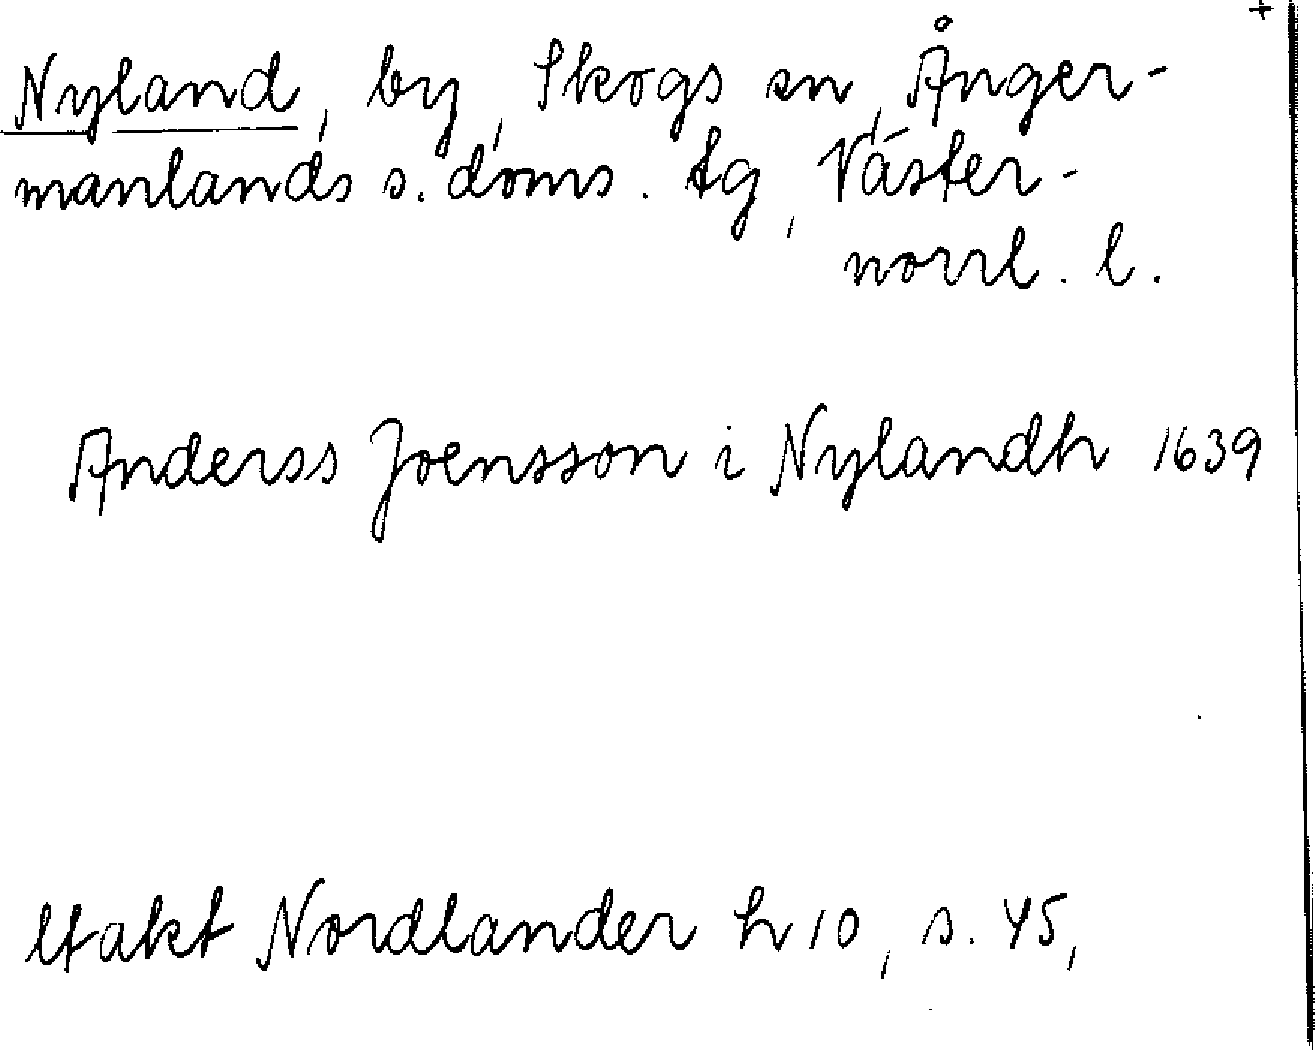 +
Nyland, by, Skogs sn, Ånger-
manlands s. doms. tg, Väster-
norrl. l.
Anderss Joensson i Nylandh 1639
Nordlander h 10, s. 45,